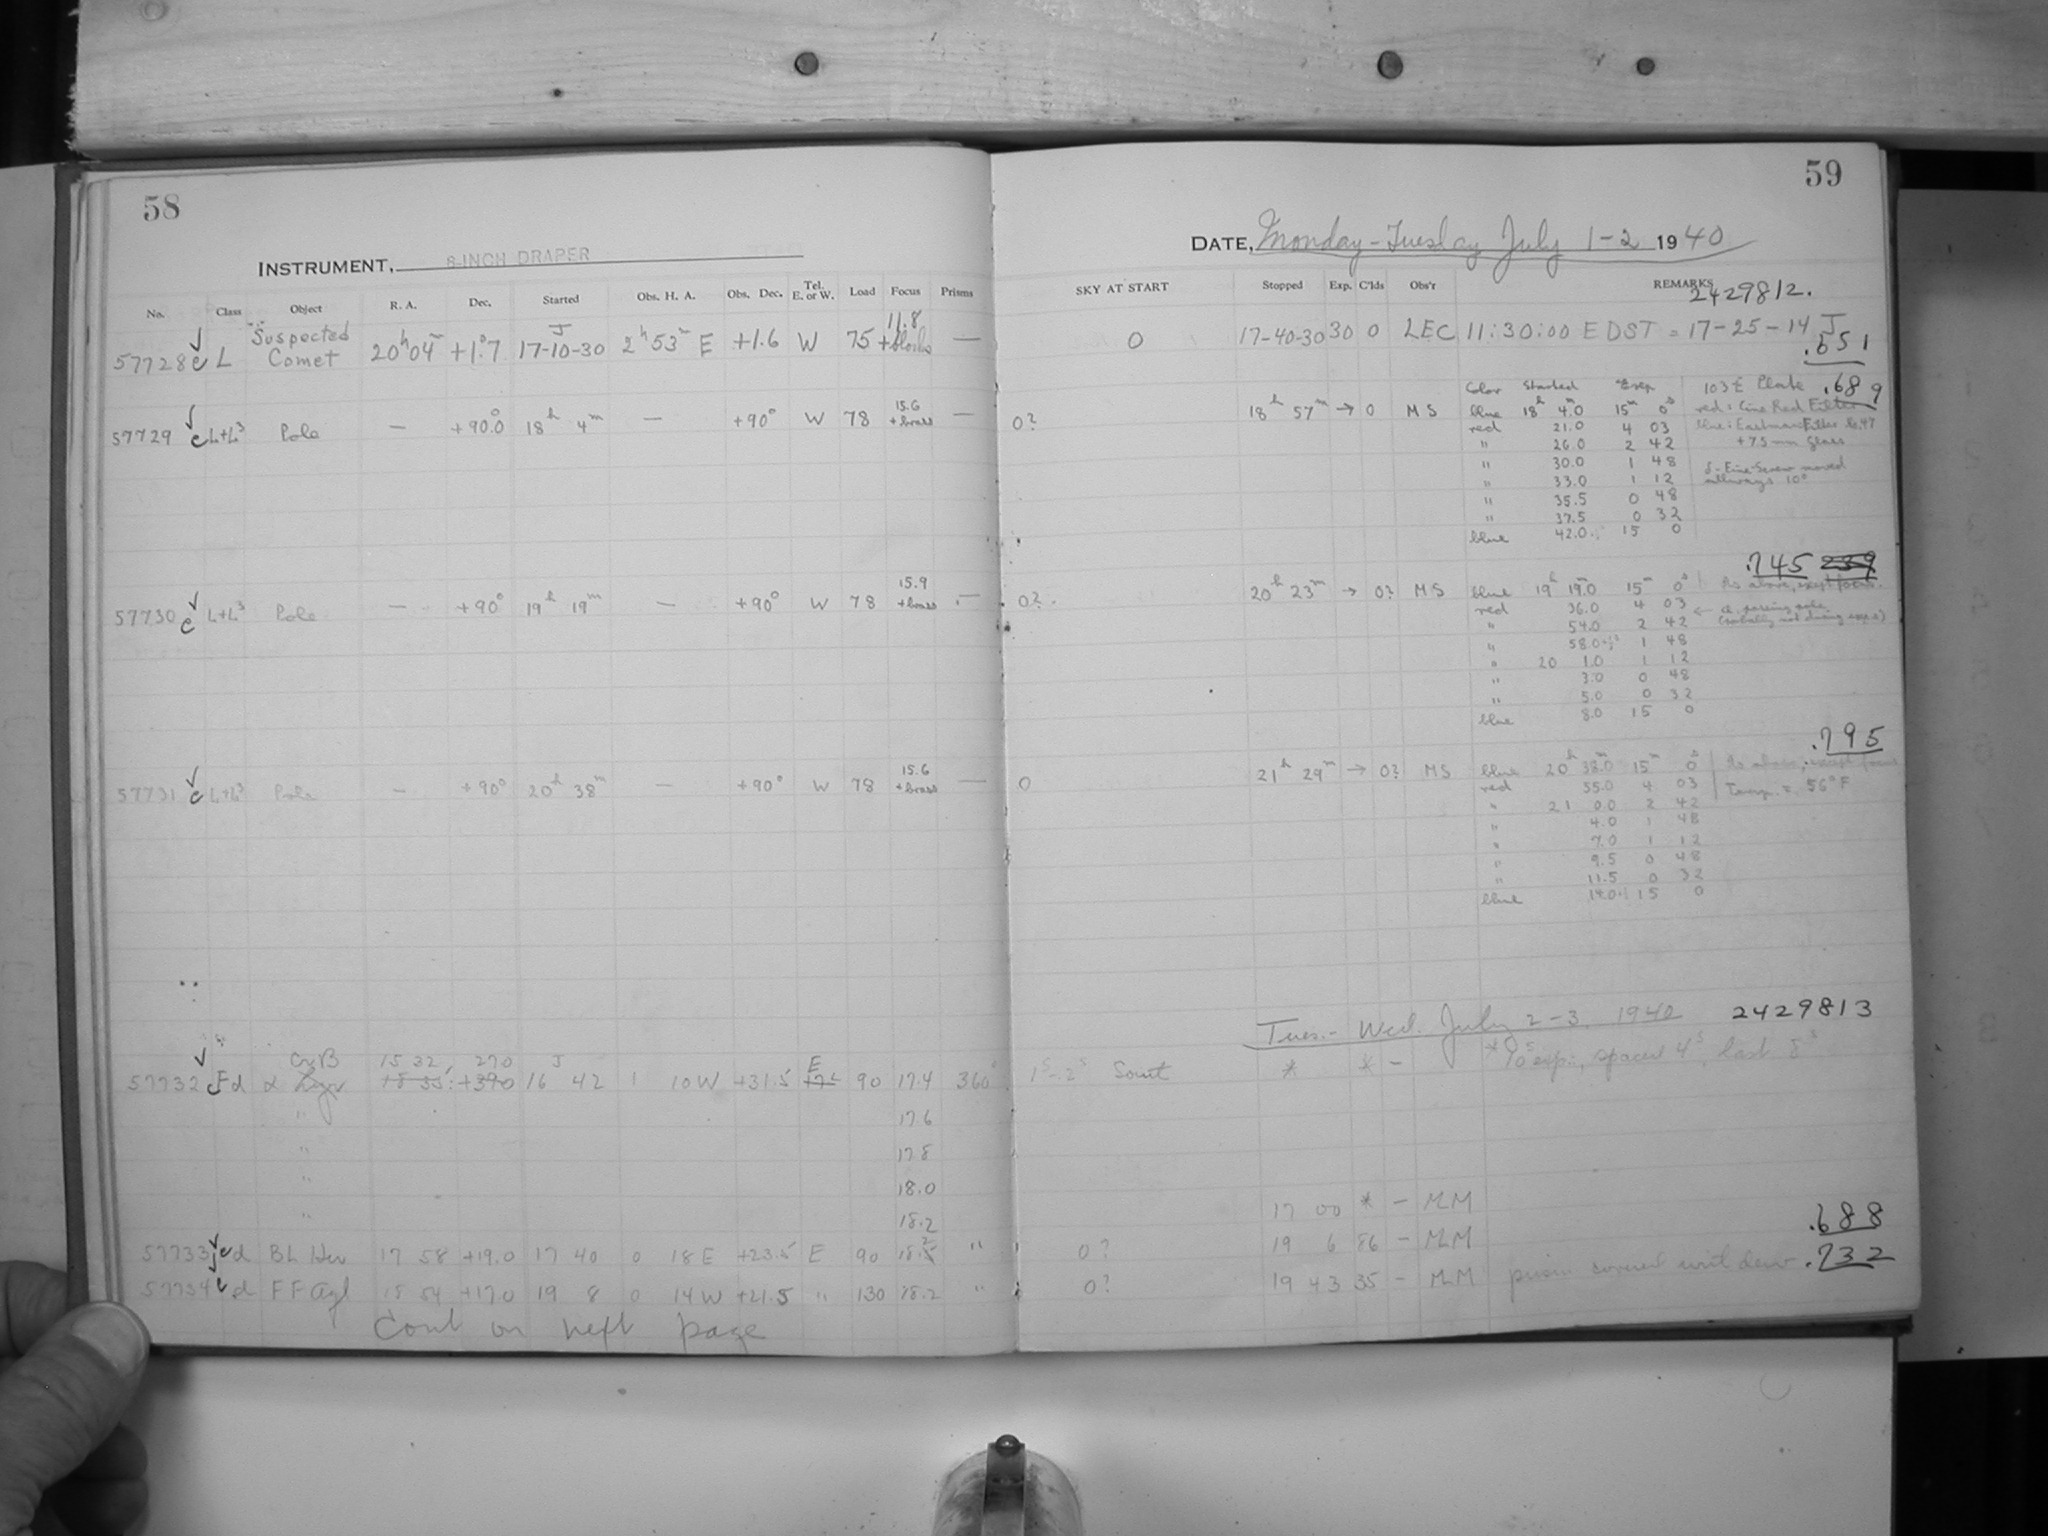 58
INSTRUMENT, 8-INCH DRAPER
No. Class Object R. A. Dec. Started Obs. H. A. Obs. Dec. Tel. E. or W. Load Focus Prisms
57728 c L "Suspected Comet 20h04m +1°.7 J 17-10-30 2h 53m E +1.6 W 75 11.8 +blocks —
57729 c L+L3 Pole — +90°.0 18h 4m — +90° W 78 15.6 +brass —
57730 c L+L3 Pole — +90° 19h 19m — +90° W 78 15.9 +brass —
57731 c L+L3 Pole — +90° 20h 38m — +90° W 78 15.6 +brass —
CrB 15 32, 270 J E
57732 c Fd α Lyr 18 35: +390 16 42 1 10W +31.5 90 17.4 360°
" 17.6
" 17.8
" 18.0
" 18.2
57733 c d BL Her 17 58 +19.0 17 40 0 18 E +23.5 E 90 18.2 "
57734 c d FF Aql 18 54 +17.0 19 8 0 14W +21.5 " 130 18.2 "
Cont on next page
59
DATE, Monday-Tuesday July 1-2 1940
SKY AT START Stopped Exp. C'lds Obs'r REMARKS
2429812.
0 17-40-30 30 0 LEC 11:30:00 EDST = 17-25-14 J
.651
Color Started Exp 103E Plate .689
0? 18h 57m → 0 MS blue 18h 4m.0 15m 0s red: Cine Red Filter
red 21.0 4 03 blue: Eastman Filter No. 47
" 26.0 2 42 + 7.5 mm Glass
" 30.0 1 48 δ-Fine-Screw moved
" 33.0 1 12 always 10°
" 35.5 0 48
" 37.5 0 32
blue 42.0 15 0
.745 239
0? 20h 23m → 0? MS blue 19h 19m.0 15m 0s As above, except focus.
red 36.0 4 03 ← cl. passing pole
" 54.0 2 42 (probably not during exp.s)
" 58.0 1 48
" 20 1.0 1 12
" 3.0 0 48
" 5.0 0 32
blue 8.0 15 0
.795
0 21h 29m → 0? MS blue 20h 38m.0 15m 0s As above, except focus
red 55.0 4 03 Temp. = 56°F
" 21 0.0 2 42
" 4.0 1 48
" 7.0 1 12
" 9.5 0 48
" 11.5 0 32
blue 14.0 15 0
Tues.- Wed. July 2-3, 1940 2429813
1s-2s * * - exp., spaced 4s, last 8s
17 00 * - MLM
.688
0? 19 6 86 - MLM
0? 19 43 35 - MLM prism covered with dew .732